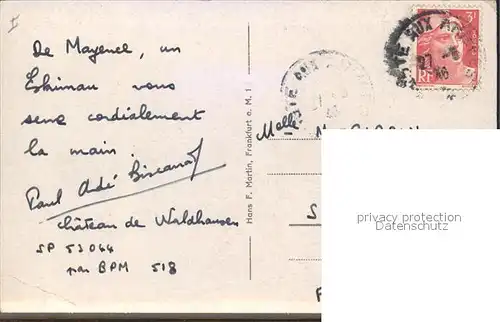 De Mayence, un
Eskimau vous
serre cordialement
la main
Paul André
château de Waldhausen
SP 53044
par BPM 518
Hans F. Martin, Frankfurt a. M. 1
POSTE AUX ARMÉES
27
46
3F
RF
POSTE AUX
Melle
S
privacy protection
Datenschutz